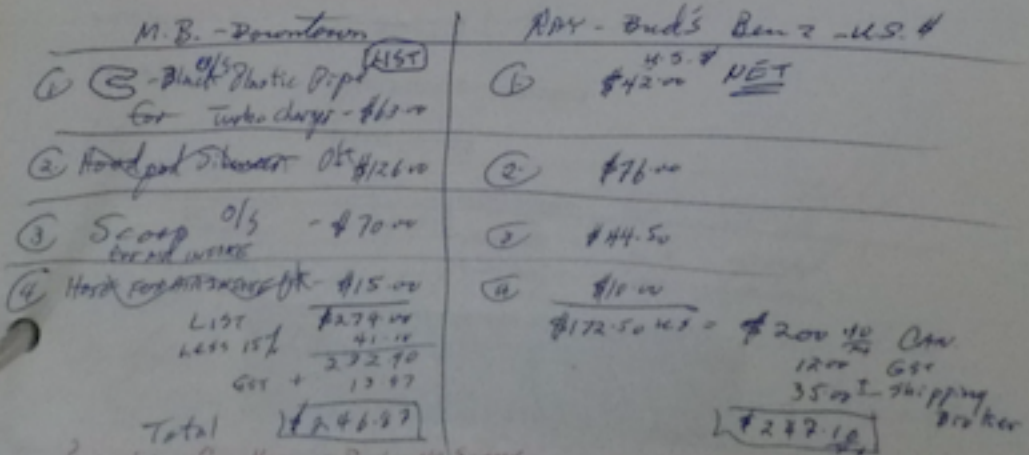 M.B. - Downtown
LIST
① - Black O/S Plastic Pipe
for Turbo charger - $63.00
② Hood pad O/S $126.00
③ Scoop O/S - $70.00
FOR AIR INTAKE
④ Hose FOR AIR INTAKE - $15.00
LIST $274.00
Less 15% 41.10
232.90
GST + 13.97
Total $246.87
RAY - Bud's Benz - U.S. $
U.S. $
① $42.00 NET
② $76.00
③ $44.50
④ $10.00
$172.50 U.S = $200 10/xx CAN.
12.00 GST
35.00 Shipping
Broker
$247.10